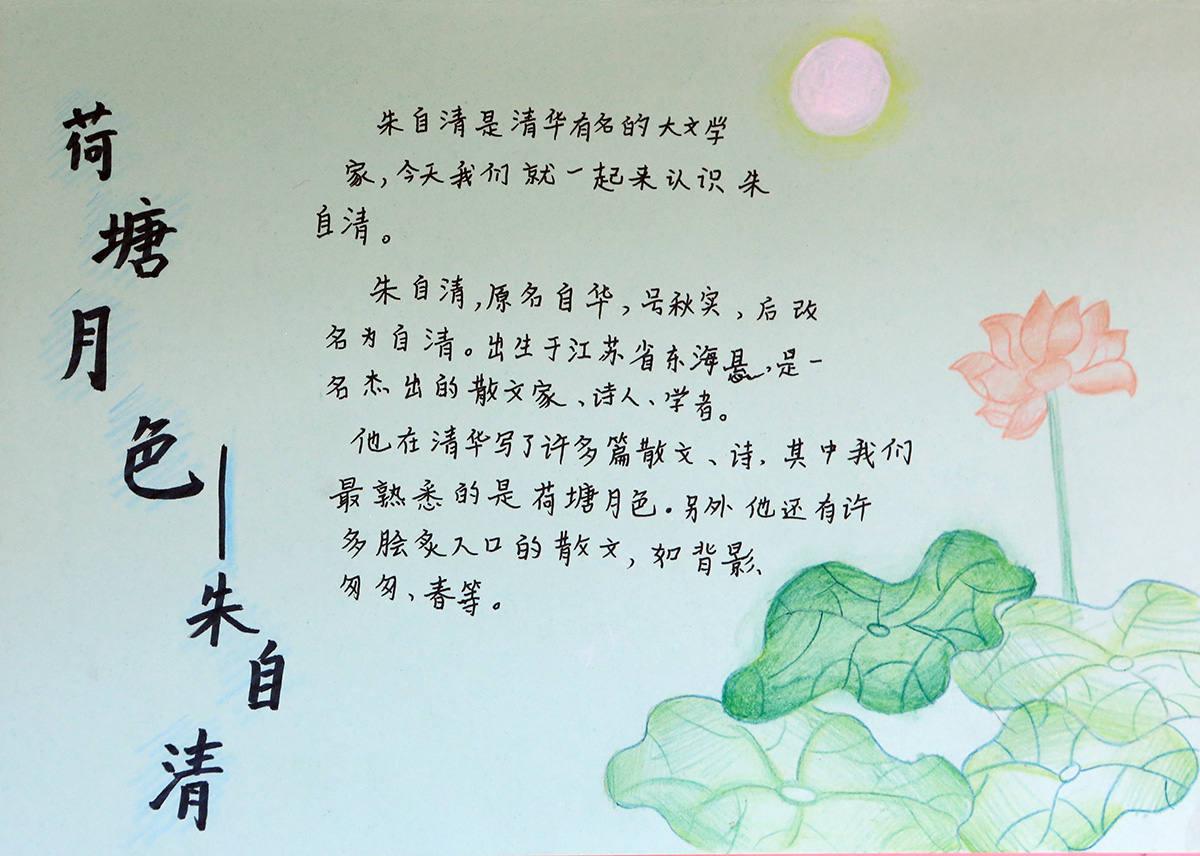 荷塘月色——朱自清
朱自清是清华有名的大文学
家,今天我们就一起来认识朱
自清。
朱自清,原名自华,号秋实,后改
名为自清。出生于江苏省东海县,是一
名杰出的散文家、诗人、学者。
他在清华写了许多篇散文、诗,其中我们
最熟悉的是荷塘月色。另外他还有许
多脍炙人口的散文,如背影、
匆匆、春等。